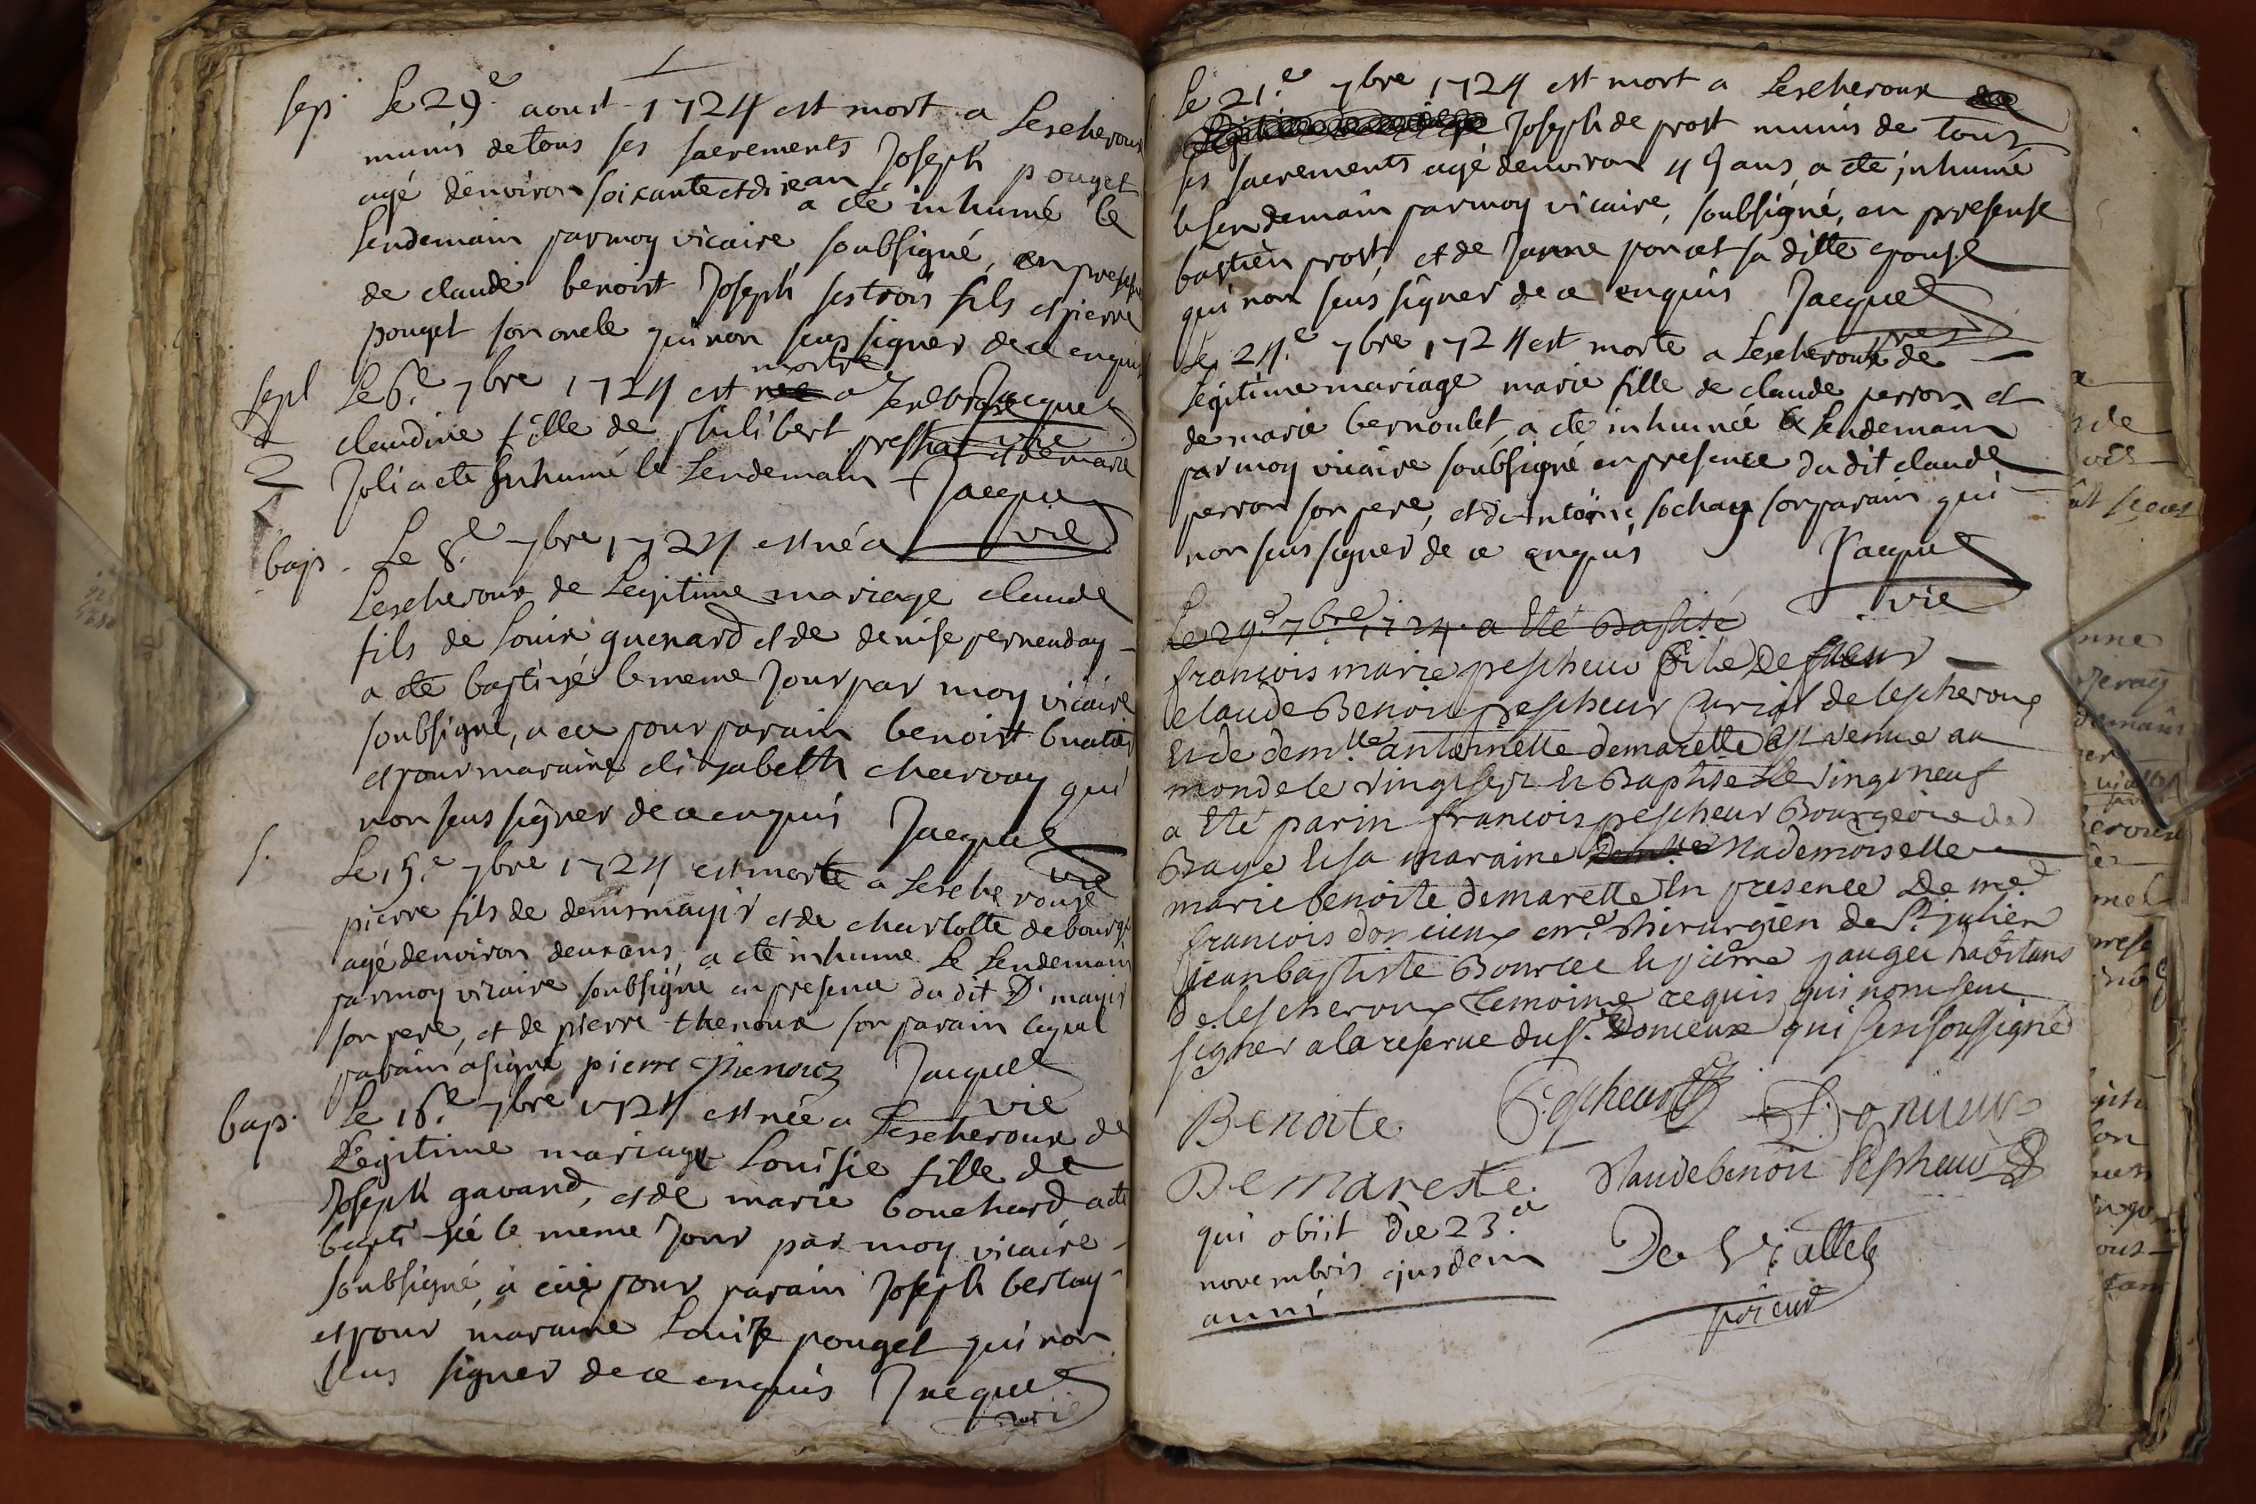 sep. Le 29.e aoust 1724 est mort a Lescheroux
munis de tous ses sacrements Joseph pouget
agé denviron soixante et dix ean a ete inhumé le
lendemain par moy vicaire soubsigné, en presense
de claude benoist Joseph ses trois fils et pierre
pouget son oncle qui non seus signer de ce enquis
Jacquet
vie
sept Le 6.e 7bre 1724 est morte a Lescheroux
claudine fille de philibert et de marie
Joli a ete Inhumé le Lendemain
Jacquet
vie
bap. Le 8.e 7bre 1724 est né a
Lescheroux de Legitime mariage claude
fils de Louix guenard et de denise perneuday
a eté baptizé le meme Jour par moy vicaire
soubsigné, a eu pour parain benoist buatier
et pour maraine elizabeth charvay qui
non seus signer de ce enquis Jacquet
vie
s. Le 15.e 7bre 1724 est morte a Lescheroux
pierre fils de denis mayir et de charlotte debourge
agé denviron deux ans, a eté inhume Le Lendemain
par moy vicaire soubsigné en presence du dit D. mayir
son pere, et de pierre thenoux son parain lequel
parain a signé pierre thenouz Jacquet
vie
bap. Le 16.e 7bre 1724 est née a Lescheroux de
Legitime mariage Louisie fille de
Joseph gavand, et de marie bouchard a eté
bapti sée le meme Jour par moy vicaire
soubsigné, a eüe pour parain Joseph bertay
et pour maraine Louise pouget qui non
seus signer de ce enquis Jacquet
vie
Le 21.e 7bre 1724 est mort a Lescheroux
Joseph de prost munis de tous
ses sacrements agé denviron 49 ans, a ete inhumé
le lendemain par moy vicaire, soubsigné, en presense
bastien prost, et de Janne poncet sa ditte epouse
qui non seus signer de ce enquis Jacquet
Le 24.e 7bre 1724 est morte a Lescheroux de
Legitime mariage marie fille de claude perron et
de marie bernoulet, a ete inhumée le Lendemain
par moy vicaire soubsigné en presence du dit claude
perron son pere, et dantoine sochay son parain qui
non seus signer de ce enquis Jacquet
vie
Le 29e 7bre 1724 a Eté Baptisé
francois marie pescheur file de sieur
claude Benoit pescheur Curial de lescheroux
Et de demlle antoinette demarette Est venue au
monde le vingt sept Et Baptisee Le vingt neuf
a Eté parin francois pescheur Bourgeois de
Bage Et sa maraine Mademoiselle
marie benoite demarette En presence De me
francois doncieux me Chirurgien de St julien
jean baptiste Bourcet Et pierre pauget habitans
de lescheroux temoins requis qui nont seu
signer a la reserve du sr. Doncieux qui sest soussigné
Benoite Pescheur Doncieux
Demareste Claude benoit Pescheur
qui obiit die 23.a De Viallet
novembris ejusdem prieur
anni